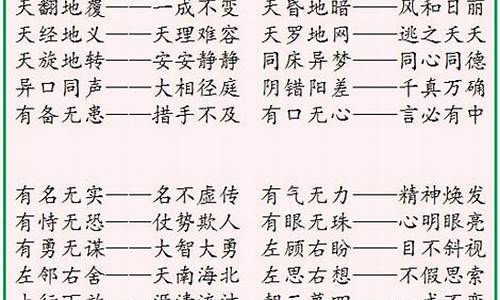 天翻地覆——一成不变 天昏地暗——风和日丽
天经地义——天理难容 天罗地网——逃之夭夭
天旋地转——安安静静 同床异梦——同心同德
异口同声——大相径庭 阴错阳差——千真万确
有备无患——措手不及 有口无心——言必有中
有名无实——名不虚传 有气无力——精神焕发
有恃无恐——仗势欺人 有眼无珠——心明眼亮
有勇无谋——大智大勇 左顾右盼——目不斜视
左邻右舍——天南海北 左思右想——不假思索